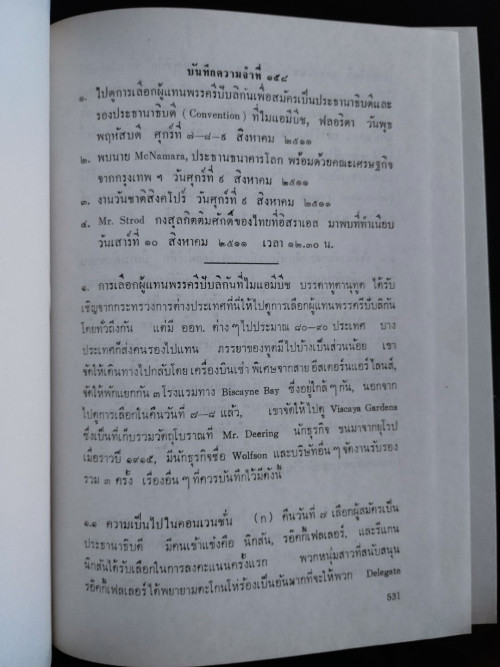 บันทึกความจำที่ ๑๕๔
๑. ไปดูการเลือกผู้แทนพรรครีปับลิกันเพื่อสมัครเป็นประธานาธิบดีและ
รองประธานาธิบดี (Convention) ที่ไมแอมีบีช, ฟลอริดา วันพุธ
พฤหัสบดี ศุกร์ที่ ๗-๘-๙ สิงหาคม ๒๕๑๑
๒. พบนาย McNamara, ประธานธนาคารโลก พร้อมด้วยคณะเศรษฐกิจ
จากกรุงเทพ ฯ วันศุกร์ที่ ๙ สิงหาคม ๒๕๑๑
๓. งานวันชาติสิงคโปร์ วันศุกร์ที่ ๙ สิงหาคม ๒๕๑๑
๔. Mr. Strod กงสุลกิตติมศักดิ์ของไทยที่อิสราเอล มาพบที่ทำเนียบ
วันเสาร์ที่ ๑๐ สิงหาคม ๒๕๑๑ เวลา ๑๒.๓๐ น.
๑. การเลือกผู้แทนพรรครีปับลิกันที่ไมแอมีบีช บรรดาทูตานุทูต ได้รับ
เชิญจากกระทรวงการต่างประเทศที่นี่ให้ไปดูการเลือกผู้แทนพรรครีปับลิกัน
โดยทั่วถึงกัน แต่มี ออท. ต่าง ๆ ไปประมาณ ๘๐-๙๐ ประเทศ บาง
ประเทศก็ส่งคนรองไปแทน ภรรยาของทูตมีไปบ้างเป็นส่วนน้อย เขา
จัดให้เดินทางไปกลับโดย เครื่องบินเช่า พิเศษจากสาย อีสเตอร์นแอร์ไลนส์,
จัดให้พักแยกกัน ๓ โรงแรมทาง Biscayne Bay ซึ่งอยู่ใกล้ ๆ กัน, นอกจาก
ไปดูการเลือกในคืนวันที่ ๗-๘ แล้ว, เขาจัดให้ไปดู Viscaya Gardens
ซึ่งเป็นที่เก็บรวมวัตถุโบราณที่ Mr. Deering นักธุรกิจ ขนมาจากยุโรป
เมื่อราวปี ๑๙๑๕, มีนักธุรกิจชื่อ Wolfson และบริษัทอื่น ๆ จัดงานรับรอง
รวม ๓ ครั้ง เรื่องอื่น ๆ ที่ควรบันทึกไว้มีดังนี้
๑.๑ ความเป็นไปในคอนเวนชั่น (ก) คืนวันที่ ๗ เลือกผู้สมัครเป็น
ประธานาธิบดี มีคนเข้าแข่งคือ นิกสัน, รอิคกี้เฟลเลอร์, และรีแกน
นิกสันได้รับเลือกในการลงคะแนนครั้งแรก พวกหนุ่มสาวที่สนับสนุน
รอิคกี้เฟลเลอร์ได้พยายามตะโกนโห่ร้องเป็นอันมากที่จะให้พวก Delegate
531